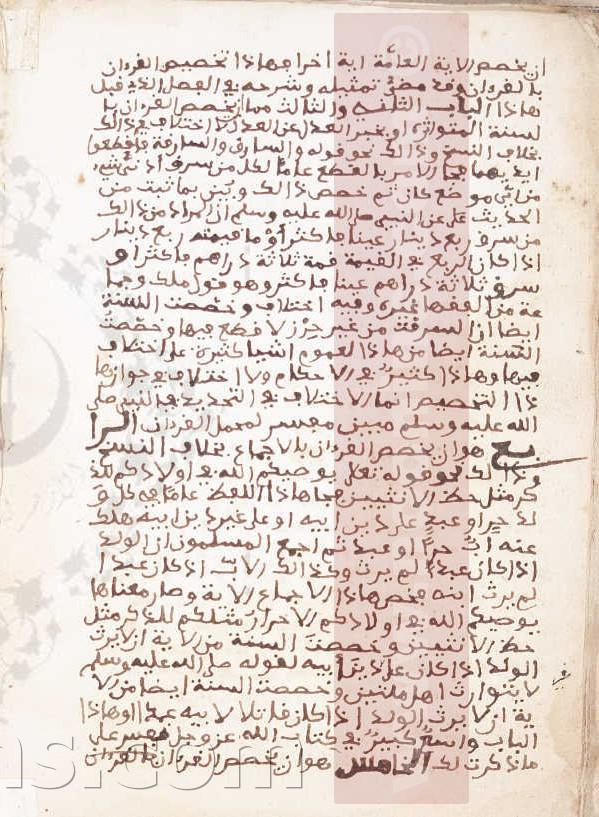 ان يخصص الاية العامّة اية اخرا فهاذا تخصيص القرءان
بالقرءان وقد مضى تمثيله وشرحه في الفصل الذي قبل
هاذا الباب الثاني والثالث مما يخصص القرءان با
لسنة المتواترة او بخبر العدل عن العدل لا اختلاف في ذالك
بخلاف النسخ وذالك نحو قوله والسارق والسارقة فاقطعوا
ايديهما فجا الامر بالقطع عاما لكل من سرق
من اي موضع كان ثم خصص ذالك وبُيّن بما ثبت من
الحديث عن النبي صلى الله عليه وسلم ان المراد من ذالك
من سرق ربع دينار عينا فاكثر أو ما قيمته ربع دينار
اذا كان الربع في القيمة قمة ثلاثة دراهم فاكثر او
سرق ثلاثة دراهم عينا فاكثر وهو قول ملك وجما
عة من الفقها غيره وفيه اختلاف وخصصت السنة
ايضا ان السرقة من غير حرز لا قطع فيها وخصصت
السنة ايضا من هاذا العموم اشيا كثيرة على اختلاف
فيها وهاذا كثير في الاحكام ولا اختلاف في جواز ها
ذا التخصيص انما الاختلاف في التحديد فالنبي صلى
الله عليه وسلم مبين مفسر لمجمل القرءان الرا
بع هو ان يخصص القرءان بالاجماع بخلاف النسخ
وذالك نحو قوله تعلى يوصيكم الله في اولادكم للذ
كر مثل حظ الانثيين فجا هاذا اللفظ عاما في كل و
لد حرٍ او عبد على دين ابيه او على غير دين ابيه هلك
عنه ابٌ حرٌ او عبد ثم اجمع المسلمون ان الولد
اذا كان عبدا لم يرث وكذالك الاب اذا كان عبدا
لم يرث ابنه فخصص هاذا الاجماع الاية وصار معناها
يوصيكم الله في اولادكم الاحرار مثلكم للذكر مثل
حظ الانثيين وخصصت السنة من الاية ان لا يرث
الولد اذا كان على دين ابيه لقوله صلى الله عليه وسلم
لا يتوارث اهل ملتين وخصصت السنة ايضا من الا
ية ان لا يرث الولد اذا كان قاتلا لابيه عمدا وهاذا
الباب واسع كبير في كتاب الله عز وجل فقس على
ما ذكرت لك الخامس هو ان يخصص القرءان بالقرءان